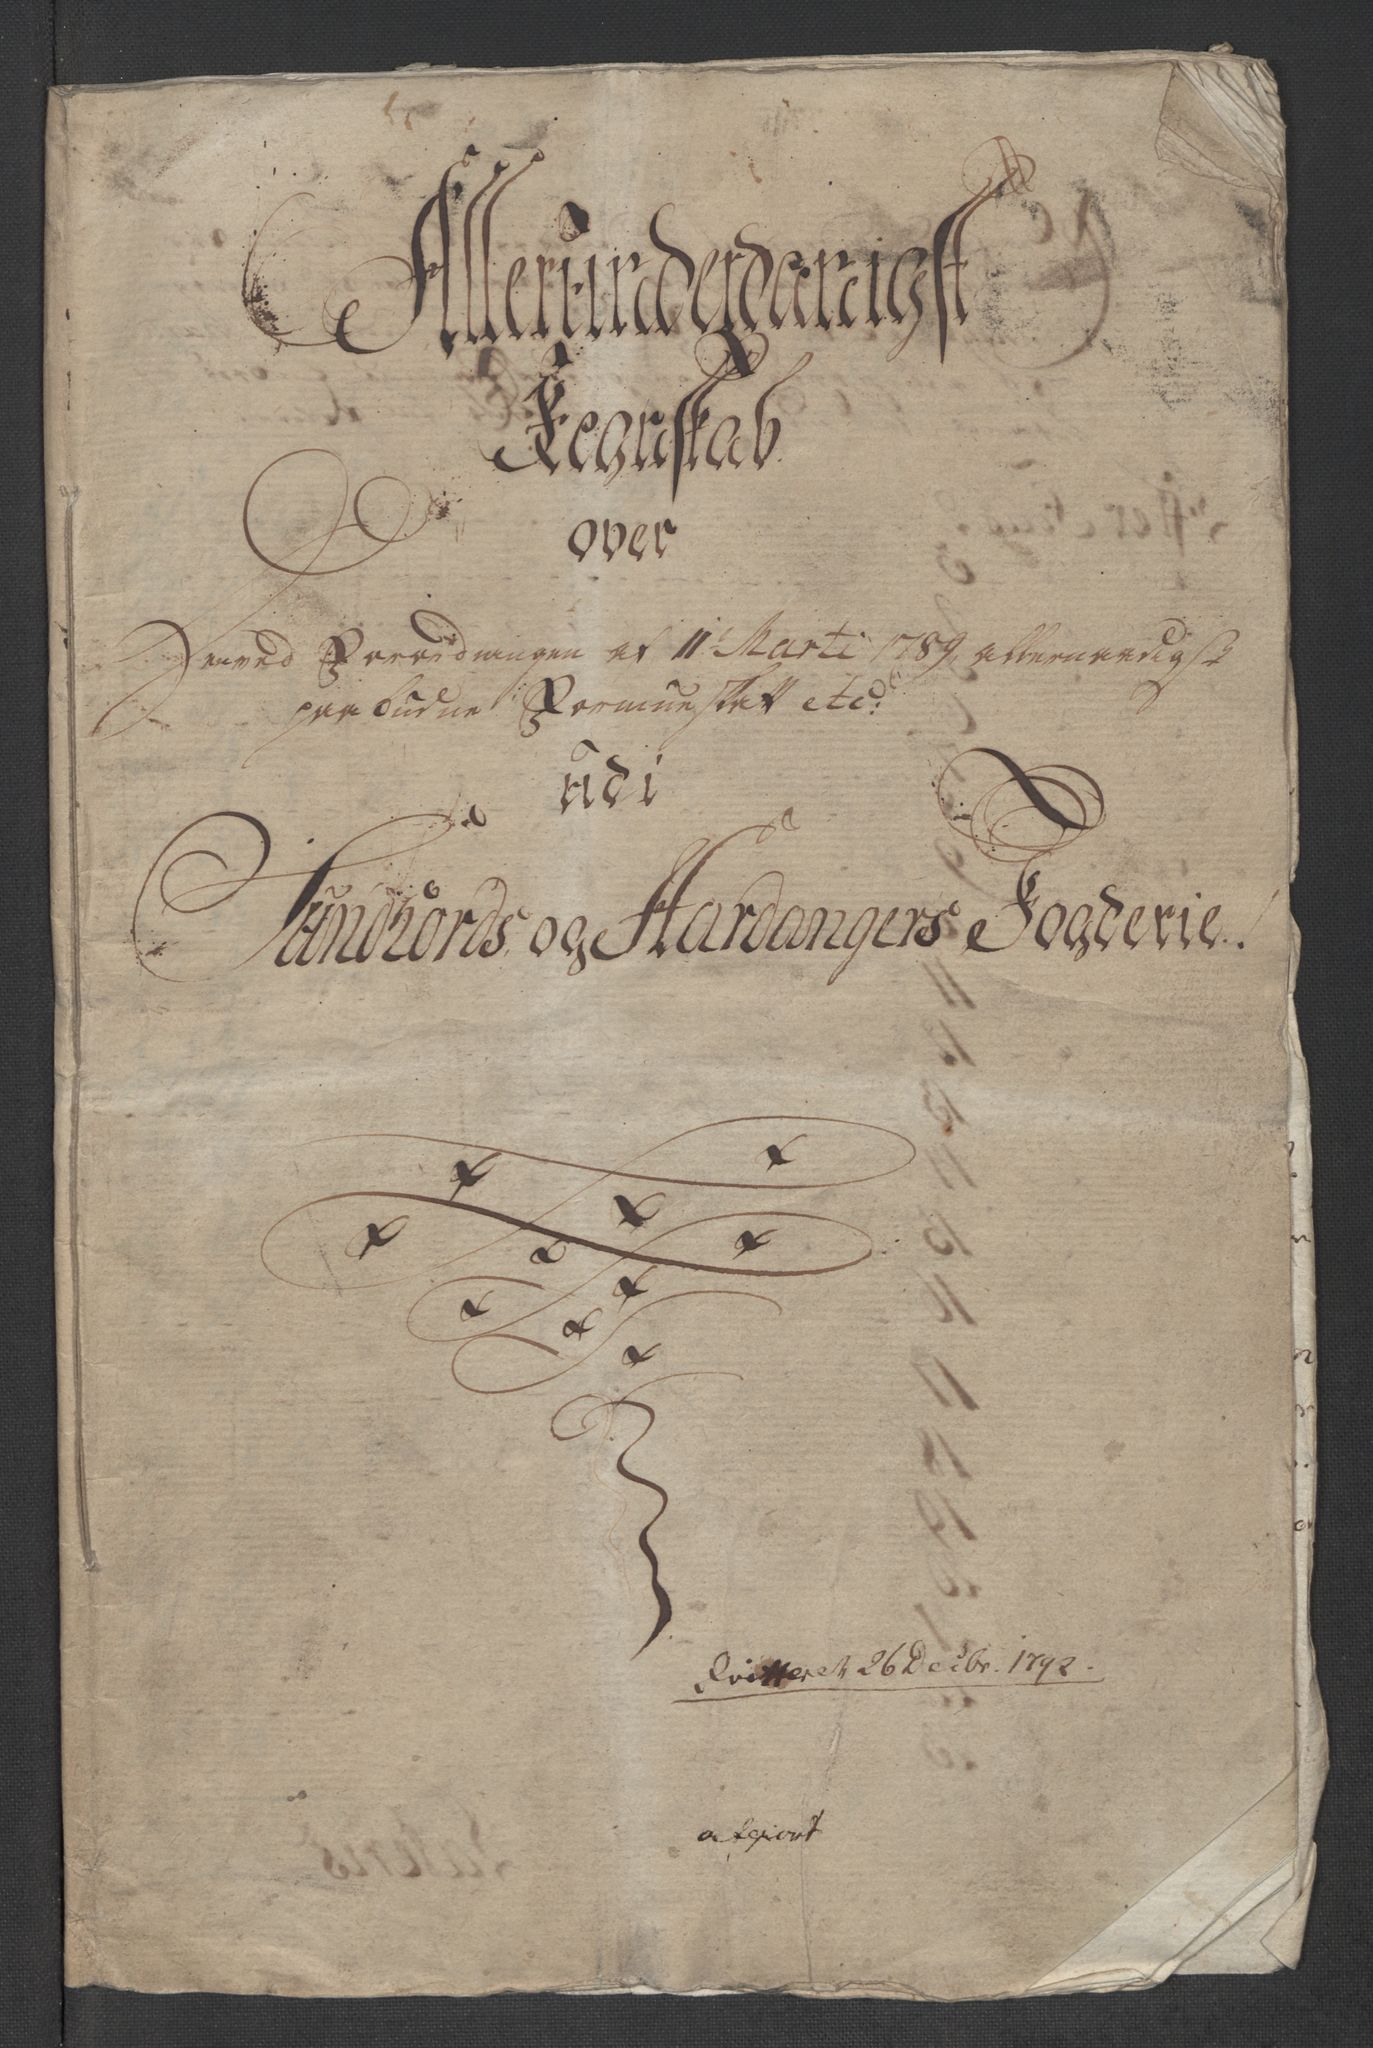 Allerunderdanigst
Regnskab
over
Den ved Forordningen af 11te Marti 1789 allernaadigst
paabudne Formueskatt etc:
udi
Sundhords og Hardangers Fogderie.
Qvitteret 26 Decbr. 1792.
afgiort